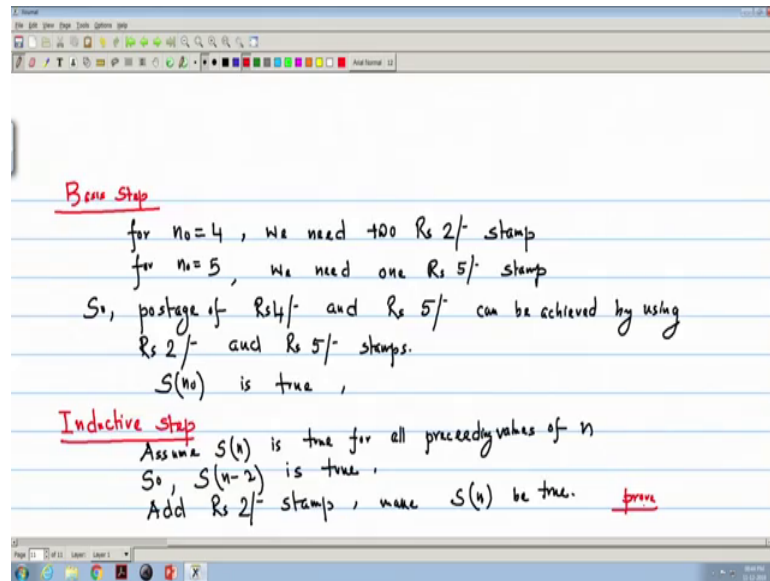 Journal
File Edit View Page Tools Options Help
Arial Normal 12
Basis Step
for n0 = 4 , we need two Rs 2/- stamp
for n0 = 5 , we need one Rs 5/- stamp
So, postage of Rs4/- and Rs 5/- can be achieved by using
Rs 2/- and Rs 5/- stamps.
S(n0) is true ,
Inductive step
Assume S(n) is true for all preceeding values of n
So, S(n-2) is true .
Add Rs 2/- stamps , make S(n) be true. prove
Page 11 of 11 Layer: Layer 1